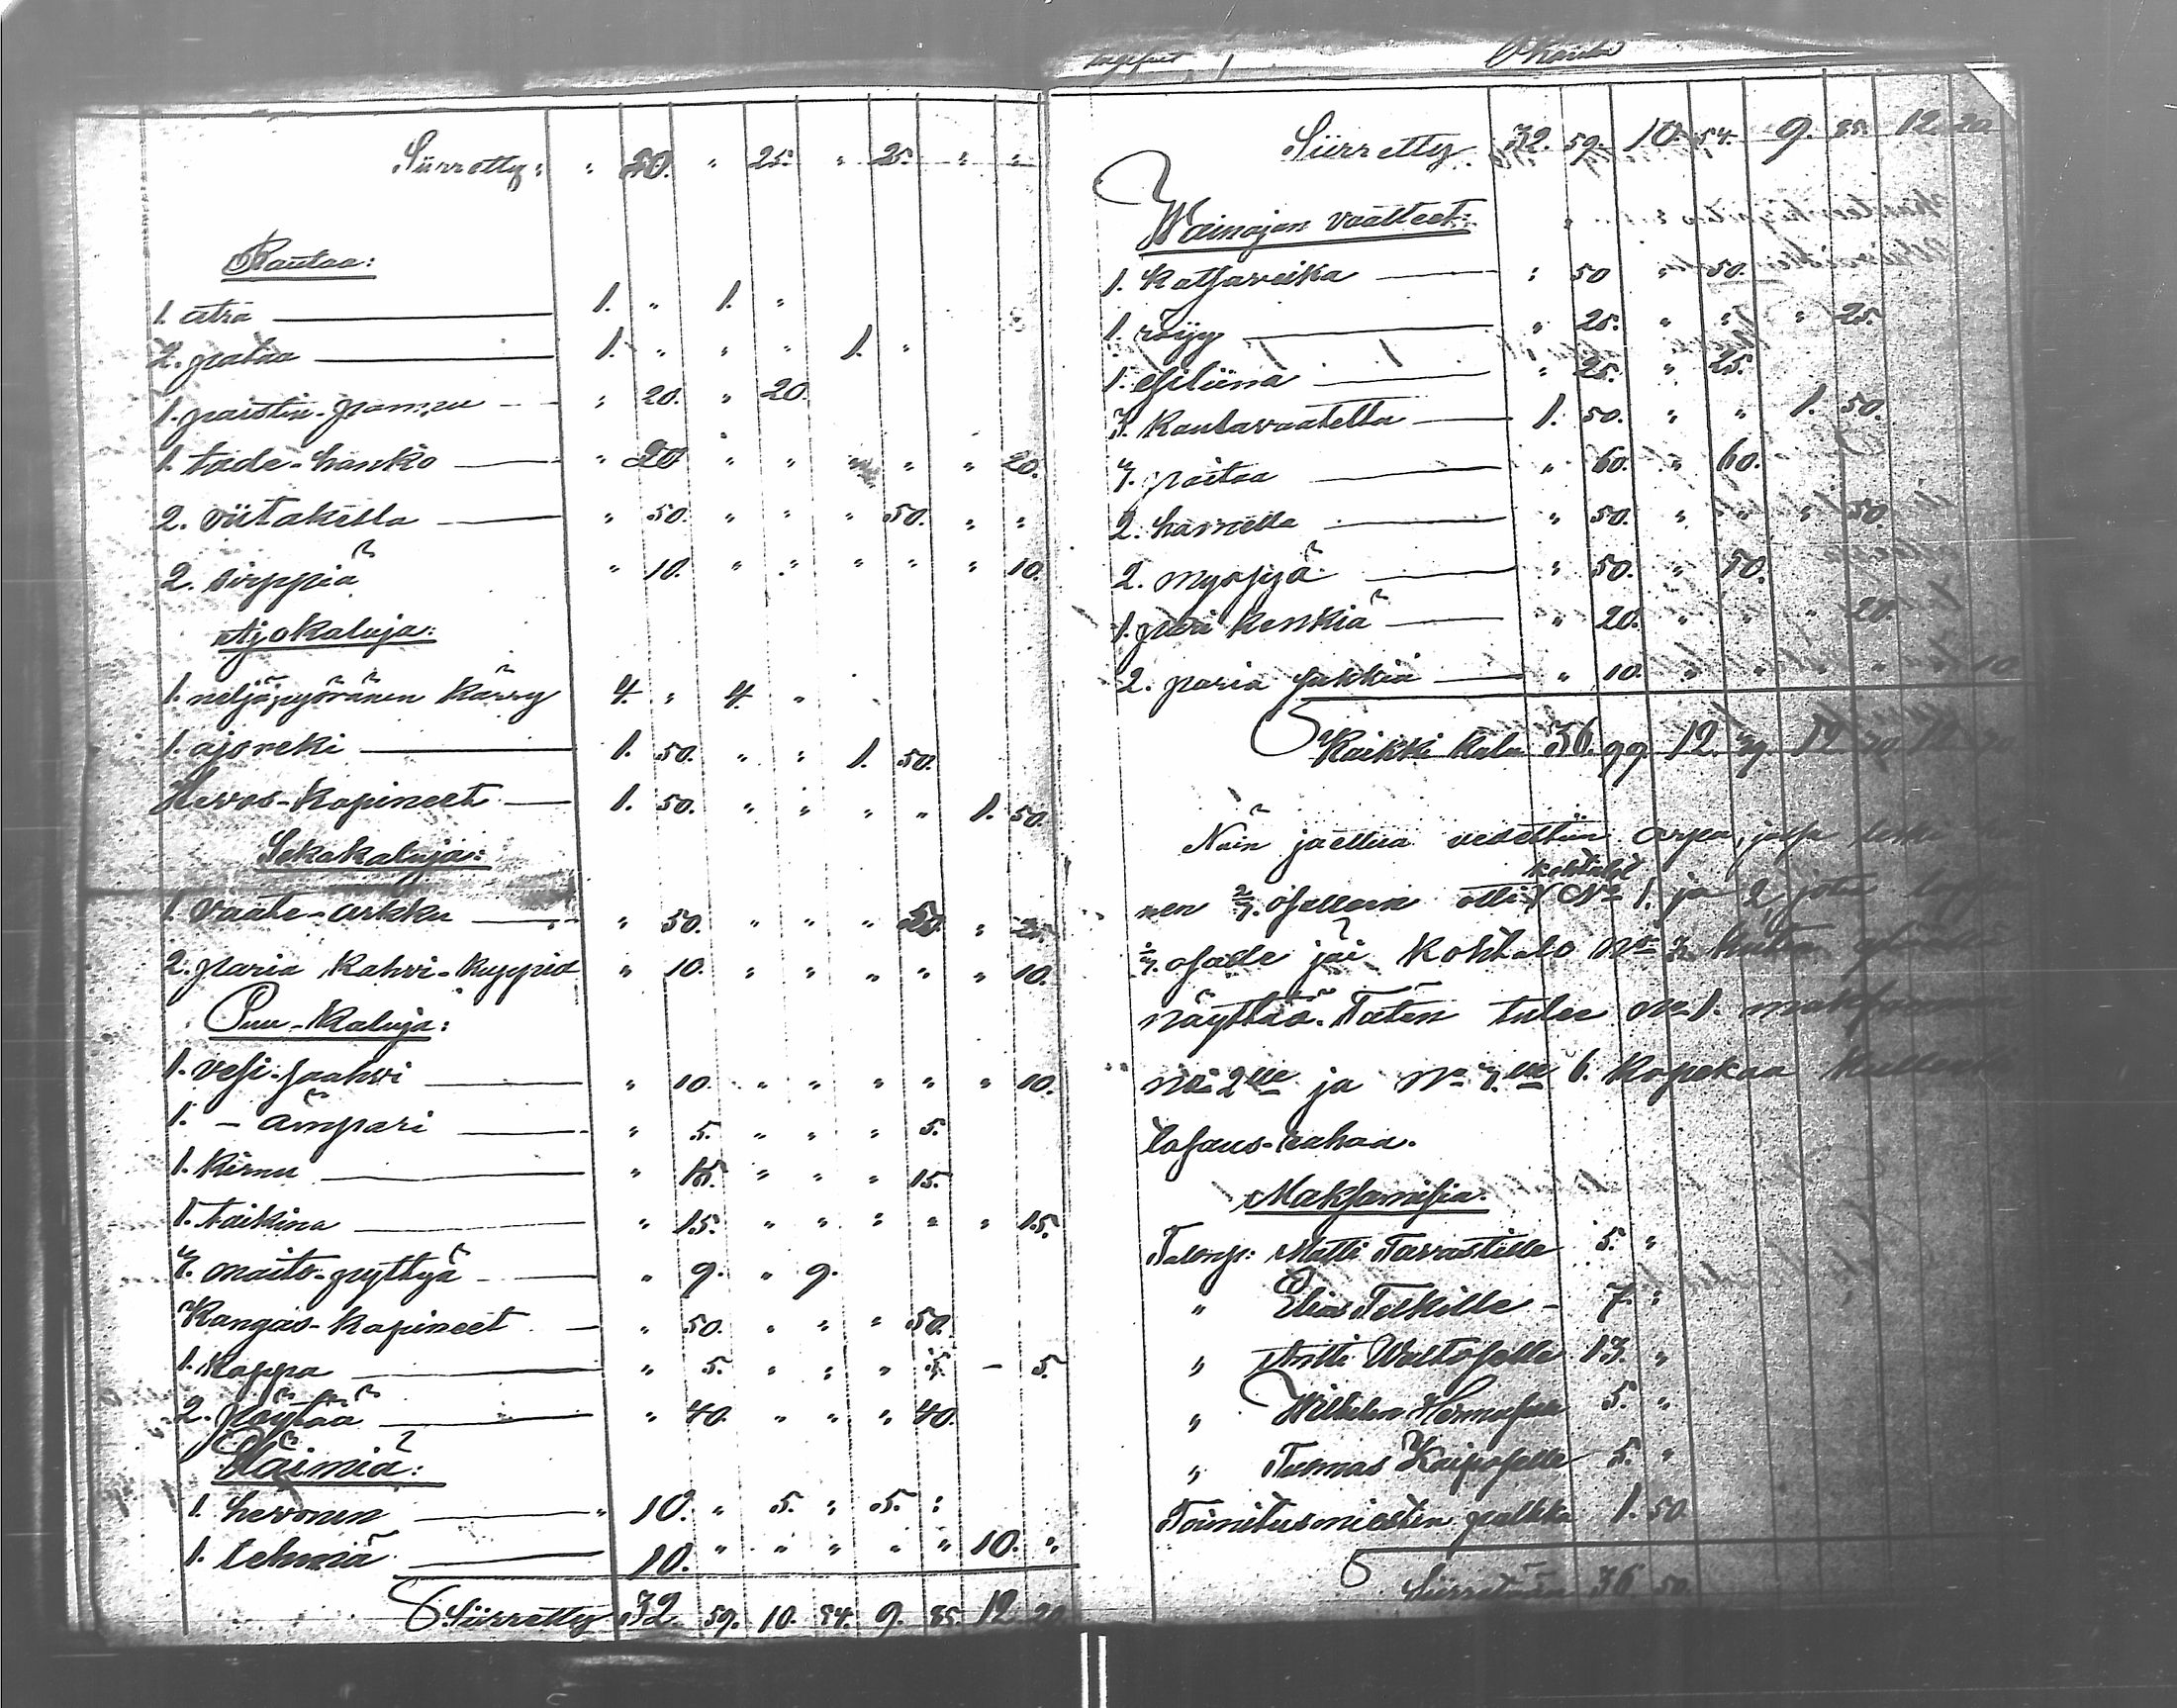 Siirretty: " 50. " 25. " 25. " "
Rautaa:
1. atra 1. " 1. "
2. pataa 1. " " " 1. "
1. paistin-pannu " 20. " 20.
1. tade-hanko " 20 " " " " " 20.
2. viitakella " 50. " " " 50. " "
2. sirppiä " 10. " " " " " 10.
Ajokaluja:
1. neljäpyöränen kärry 4. " 4. "
1. ajoreki 1. 50. " " 1. 50.
Hevos-kapineet 1. 50. " " " " 1. 50.
Sekakaluja:
1. vaate-arkku " 50. " " " "
2. paria kahvi-kuppia " 10. " " " " " 10.
Puu-kaluja:
1. vesi-saahvi " 10. " " " " " 10.
1. – ämpari " 5. " " " 5.
1. kirnu " 15. " " " 15.
1. taikina " 15. " " " " " 15.
3. maito-pyttyä " 9. " 9.
Kangas-kapineet " 50. " " " 50.
1. kappa " 5. " " " – 5.
2. pöytää " 40. " " " 40.
Eläimiä:
1. hevonen " 10. " 5. " 5. "
1. lehmä 10. " " " " " 10. "
Siirretty 32. 59. 10. 54. 9. 85. 12. 20
Siirretty 32. 59. 10. 54. 9. 85. 12. 20.
Wainajan vaatteet:
1. katsaveika " 50 " 50.
1. röijy " 25. " " " 25.
1. esiliina " 25. " 25.
3. kaulavaatetta 1. 50. " " 1. 50.
3. paitaa " 60. " 60.
2. hametta " 50. " " " 50.
2. myssyä " 50. " 50.
1. pari kenkiä " 20. " " " 20.
2. paria sukkia " 10. " " " " " 10
Kaikki kalu 36. 99. 12. 39
Näin jaettua vedettiin arpa, jossa
nen 2/3. osallaan otti kohtalot No 1. ja 2, jota
1/3. osalle jäi kohtalo No 3. kuten
näyttää. Täten tulee No 1. maksamaan
No 2lle ja No 3.lle 6. kopekaa
tasaus-rahaa.
Maksamisia.
Talonp: Matti Tavastille 5. "
" Elias Telkille – 7. "
" Antti Waltoselle 13. "
" Wilhelm 5. "
" Tuomas Kaiposelle 5. "
Toimitusmiesten palkka 1. 50.
Siirretään 36 50.